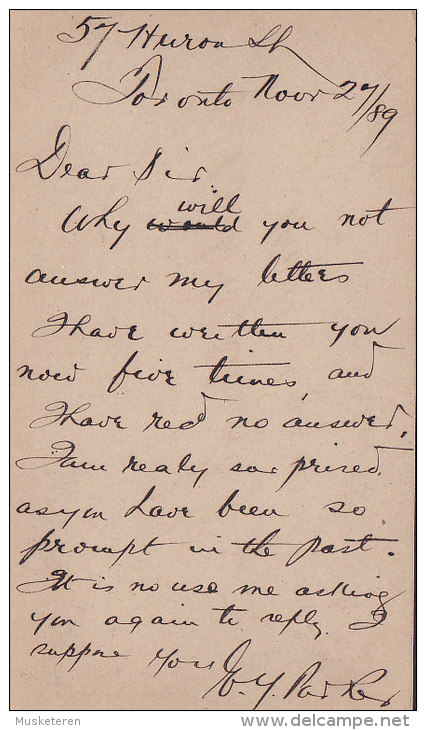 57 Huron St
Toronto Novr 27/89
Dear Sir
will
Why would you not
answer my letters
I have written you
now five times, and
I have recd no answer.
I am realy surprised
as you have been so
prompt in the past.
It is no use me asking
you again to reply I
suppose Yours
Parker
Musketeren
delcampe.net